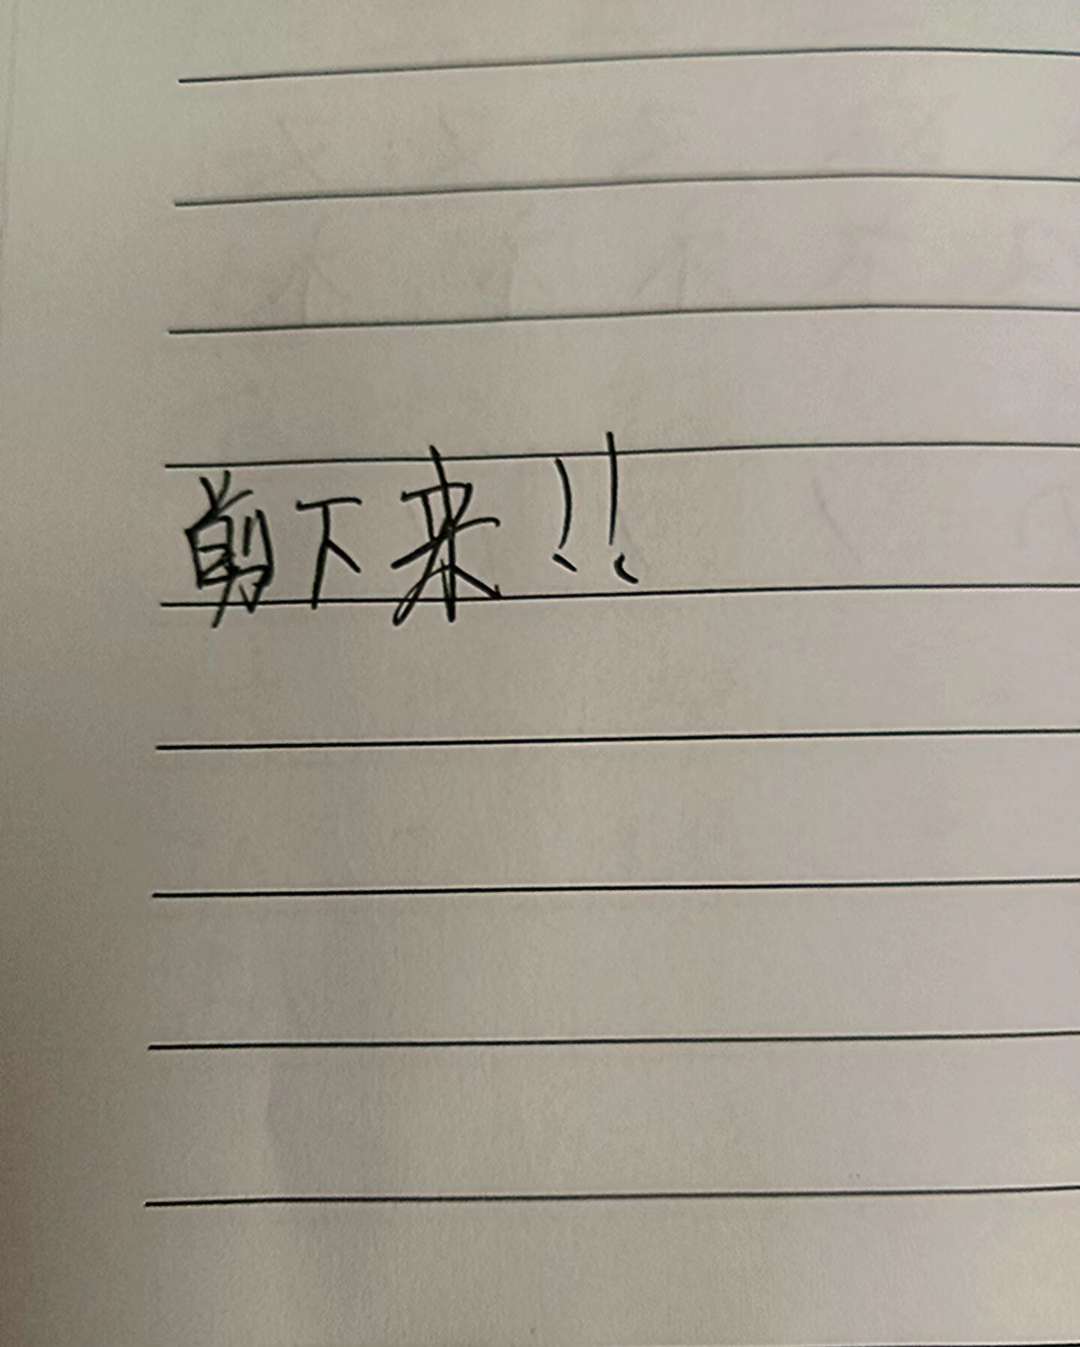 剪下来！！